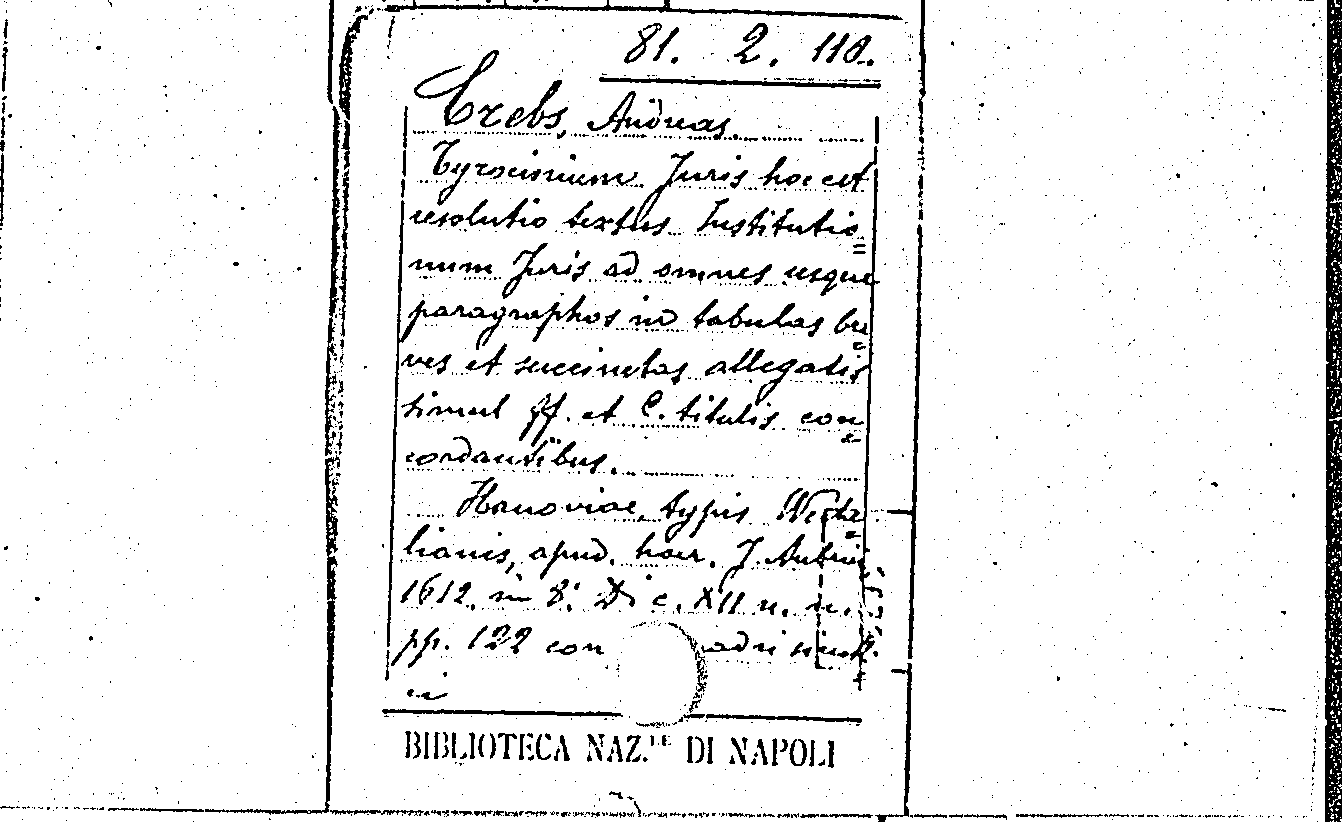 81. 2. 110.
Crebs, Andreas.
Tyrocinium Juris hoc est
resolutio textus Institutio=
num Juris ad omnes usque
paragraphos in tabulas bre=
ves et succinctas allegatis
simul ff. et C. titulis con=
cordantibus.
Hanoviae, typis Weche=
lianis, apud. haer. J. Aubrii
1612. in 8.° Di c. XII n. n.
pp. 122 con adri
ci
BIBLIOTECA NAZ.LE DI NAPOLI